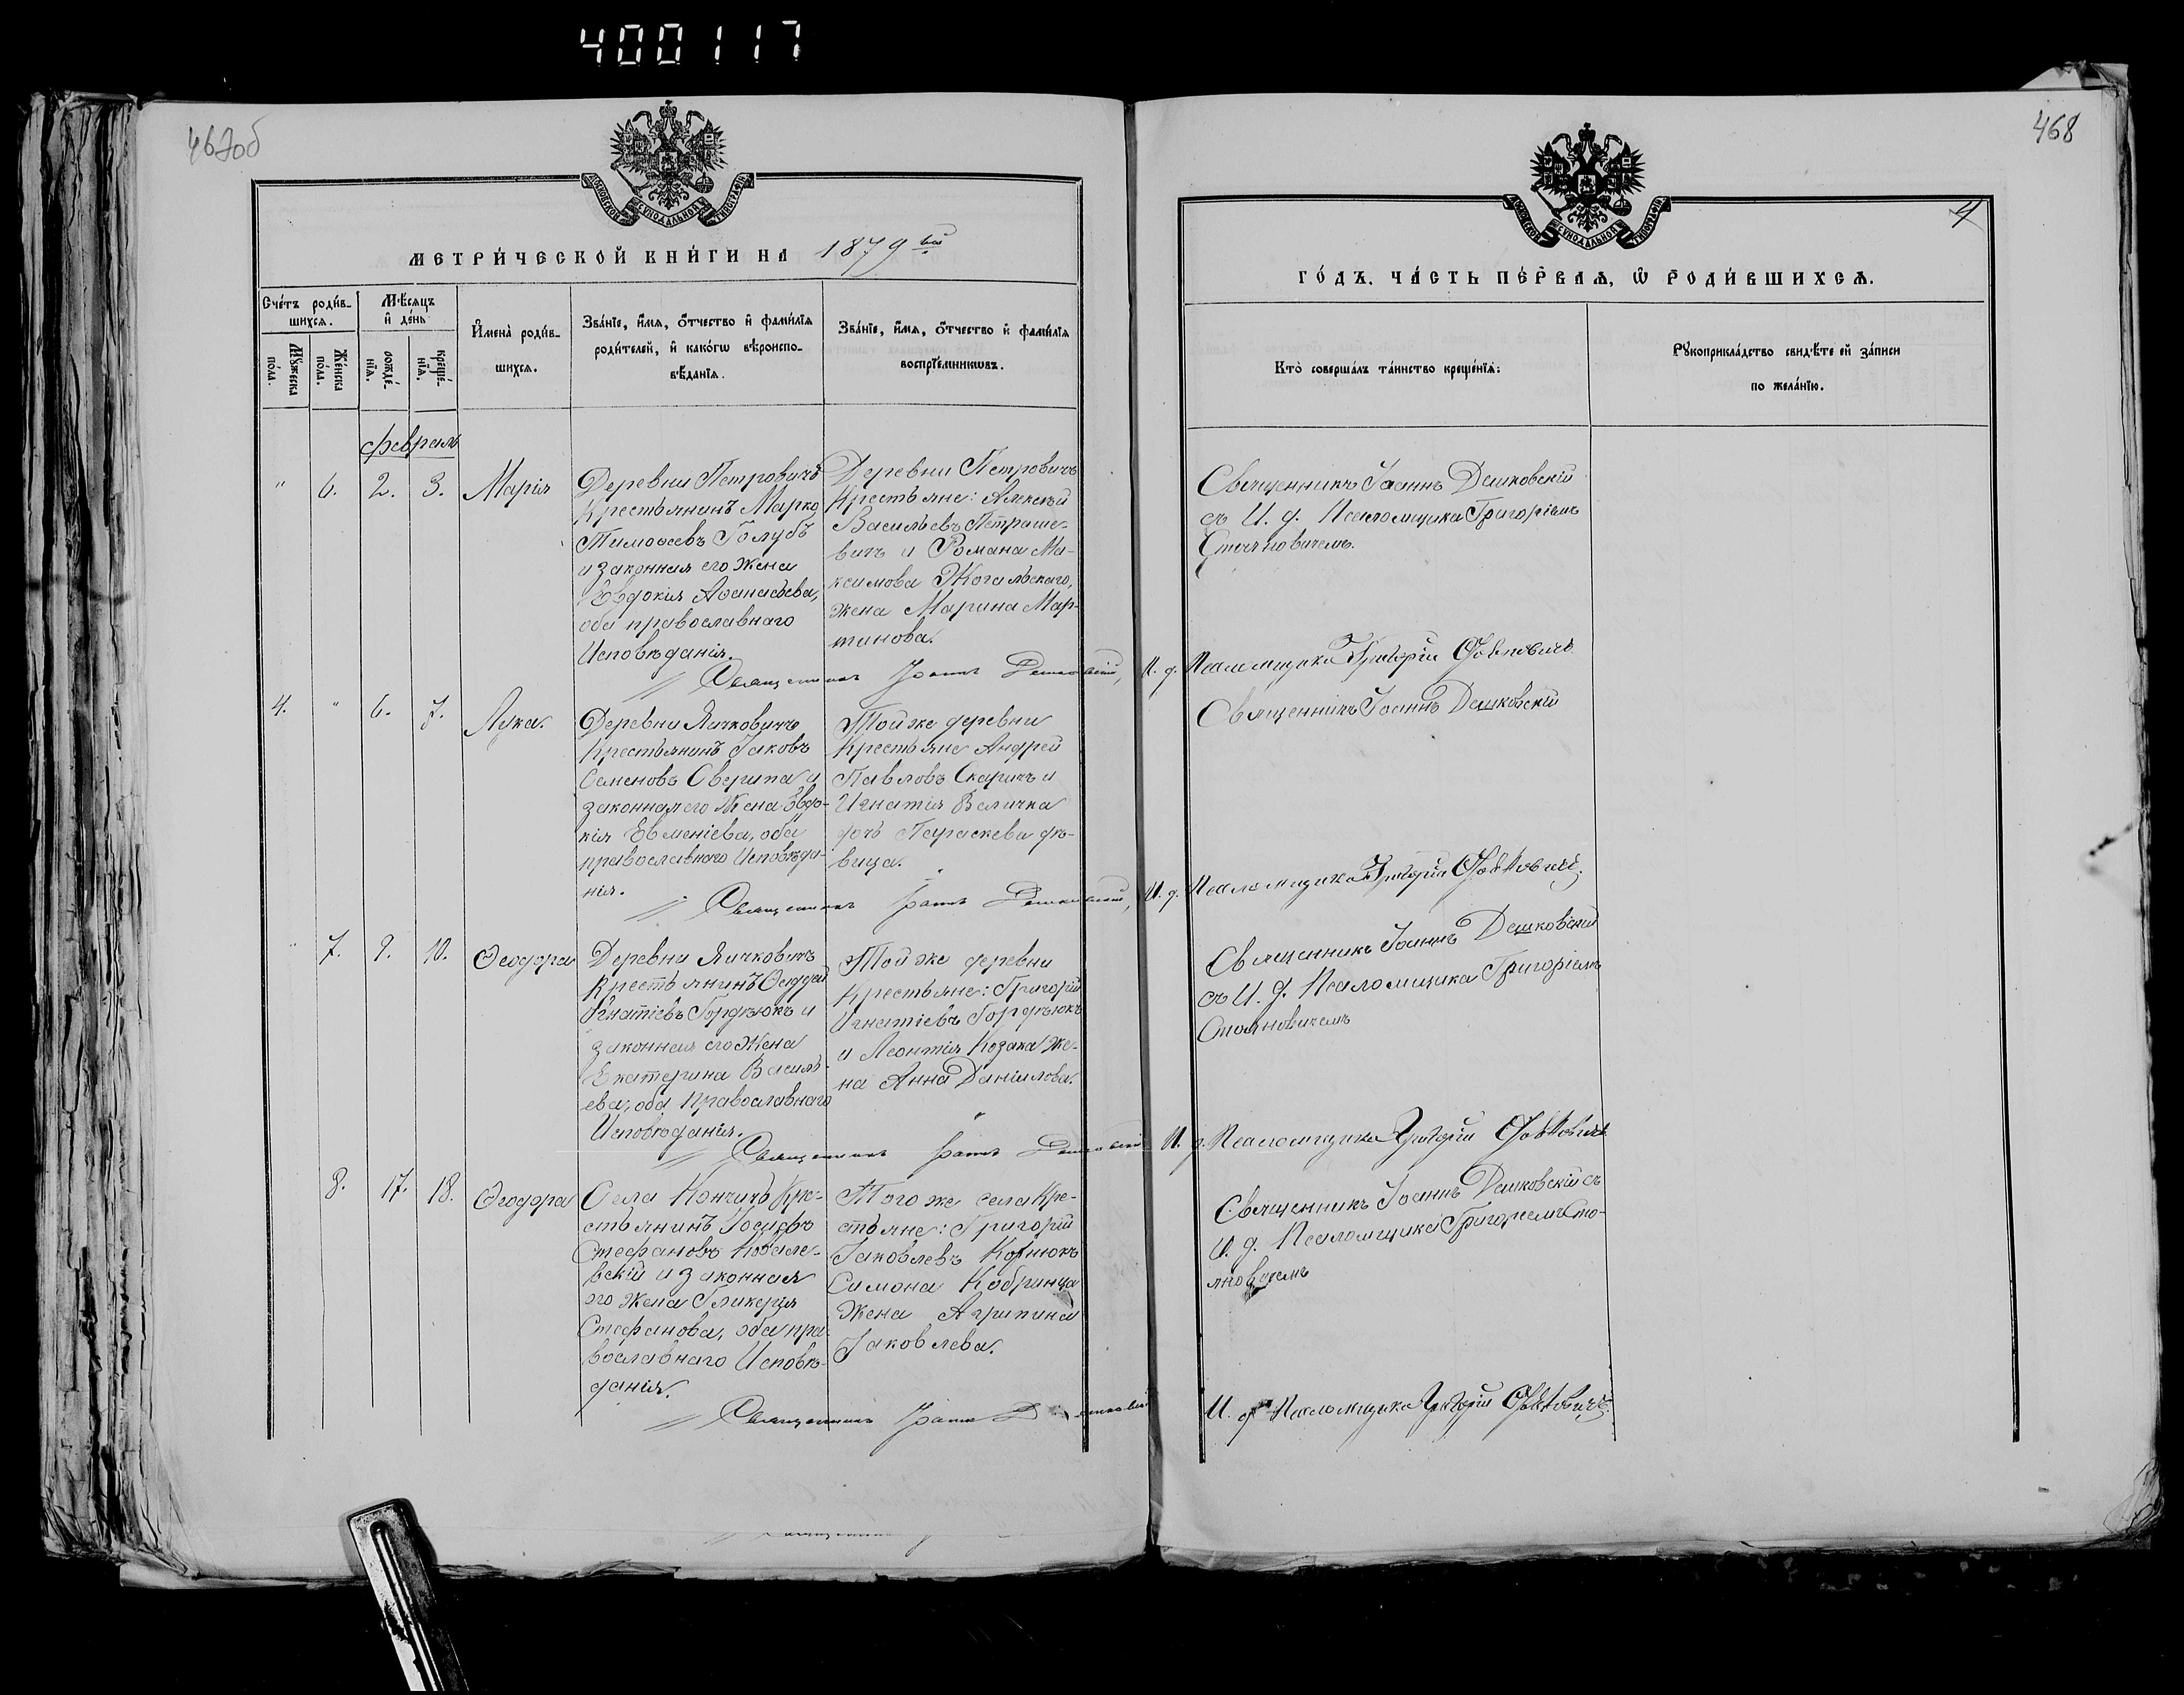 400117
467об
МОСКОВСКОЙ СУНОДАЛЬНОЙ ТИПОГРАФІИ
МЕТРИ́ЧЕСКОЙ КНИ́ГИ НА 1879 ый
Сче́тъ роди́в-
шихсѧ.
Мѣ́сяцъ
и҆ де́нь
Мꙋ́жеска
по́ла.
Же́нска
по́ла.
рожде́-
нїѧ.
креще́-
нїѧ.
И҆мена̀ роди́в-
шихсѧ.
Зва́нїе, и҆́мѧ, ѻ҆́тчество и҆ фами́лїѧ
роди́телей, и҆ како́гѡ вѣроиспо-
вѣ́данїѧ.
Зва́нїе, и҆́мѧ, ѻ҆́тчество и҆ фами́лїѧ
воспрїе́мникѡвъ.
февраль
" 6. 2. 3. Марія
Деревни Петровичъ
Крестьянинъ Марко
Тимоѳеевъ Голубъ
и законная его жена
Евдокія Аѳанасьева,
оба православнаго
Исповѣданія.
Деревни Петровичъ
Крестьяне: Алексѣй
Васильевъ Петраше-
вичъ и Романа Ма-
ксимова Жогальскаго,
жена Марина Мар-
тинова.
Священникъ Іоаннъ Дашковскій,
4. " 6. 7. Лука.
Деревни Ячковичъ
Крестьянинъ Іаковъ
Семеновъ Сверипа и
законная его Жена Евдо-
кія Евменіева, оба
православнаго Исповѣда-
нія.
Той же деревни
Крестьяне Андрей
Павловъ Скаричъ и
Игнатія Величка
дочь Параскева дѣ-
вица.
Священникъ Іоаннъ Дашковскій,
" 7. 9. 10. Ѳеодора
Деревни Ячковичъ
Крестьянинъ Ѳаддей
Игнатіевъ Гордѣюкъ и
законная его Жена
Екатерина Василь-
ева, оба Православнаго
Исповѣданія.
Той же деревни
Крестьяне: Григорій
Игнатіевъ Гордѣюкъ
и Леонтія Козака Же-
на Анна Даніилова.
Священникъ Іоаннъ Дашковскій
8. 17. 18. Ѳеодора
Села Кончичъ Кре-
стьянинъ Іосифъ
Стефановъ Ковале-
вскій и законная
его жена Гликерія
Стефанова, оба пра-
вославнаго Исповѣ-
данія.
Того же села Кре-
стьяне: Григорій
Іаковлевъ Корнюкъ
Симона Кобринца
Жена Агрипина
Іаковлева.
Священникъ Іоаннъ Дашковскій
468
4
МОСКОВСКОЙ СУНОДАЛЬНОЙ ТИПОГРАФІИ
ГО́ДЪ. ЧА́СТЬ ПЕ́РВАѦ, Ѡ҆ РОДИ́ВШИХСѦ.
Кто̀ соверша́лъ та́инство креще́нїѧ:
Рꙋкоприкла́дство свидѣ́телей за́писи
по жела́нїю.
Священникъ Іоаннъ Дашковскій
съ И. д. Псаломщика Григоріемъ
Стояновичемъ.
И. д. Псаломщика Григорій Стояновичъ
Священникъ Іоаннъ Дашковскій
И. д. Псаломщика Григорій Стояновичъ
Священникъ Іоаннъ Дашковскій
съ И. д. Псаломщика Григоріемъ
Стояновичемъ
И. д. Псаломщика Григорій Стояновичъ
Священникъ Іоаннъ Дашковскій съ
И. д. Псаломщика Григоріемъ Сто-
яновичемъ
И. д. Псаломщика Григорій Стояновичъ